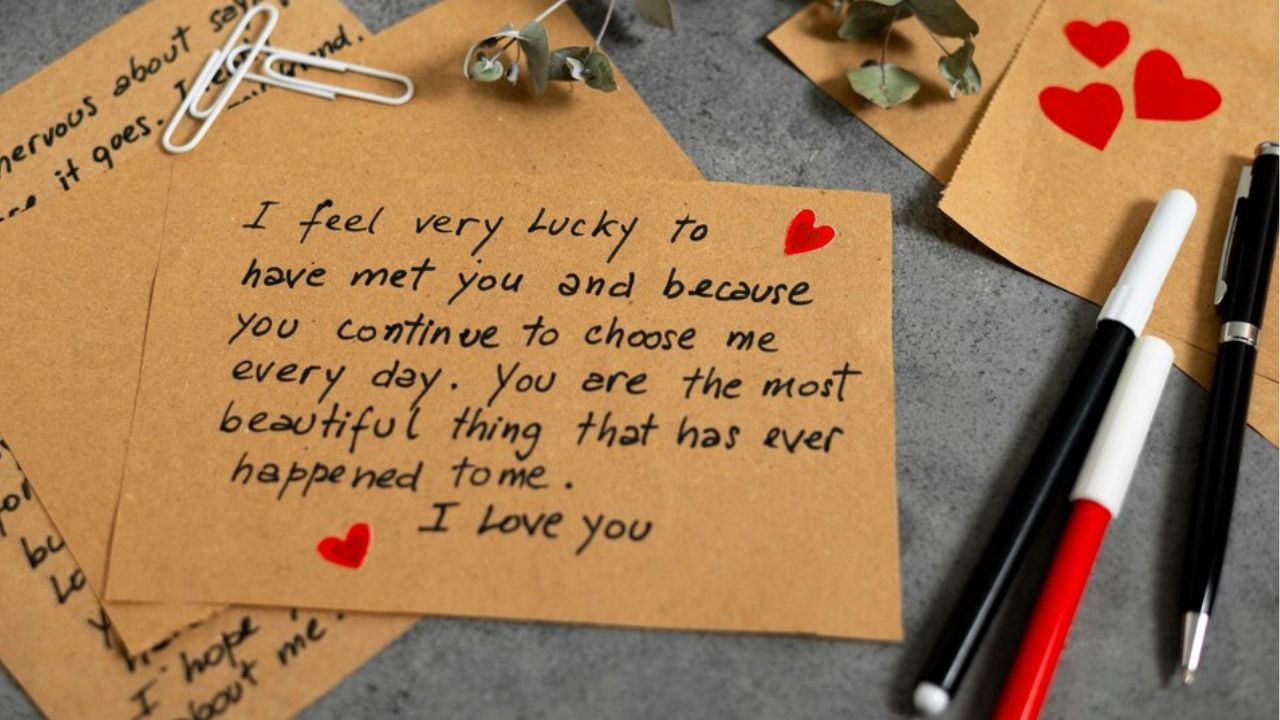 nervous about say
it goes. I
mind.
I feel very Lucky to
have met you and because
you continue to choose me
every day. You are the most
beautiful thing that has ever
happened to me.
I Love you
I hope
about me.